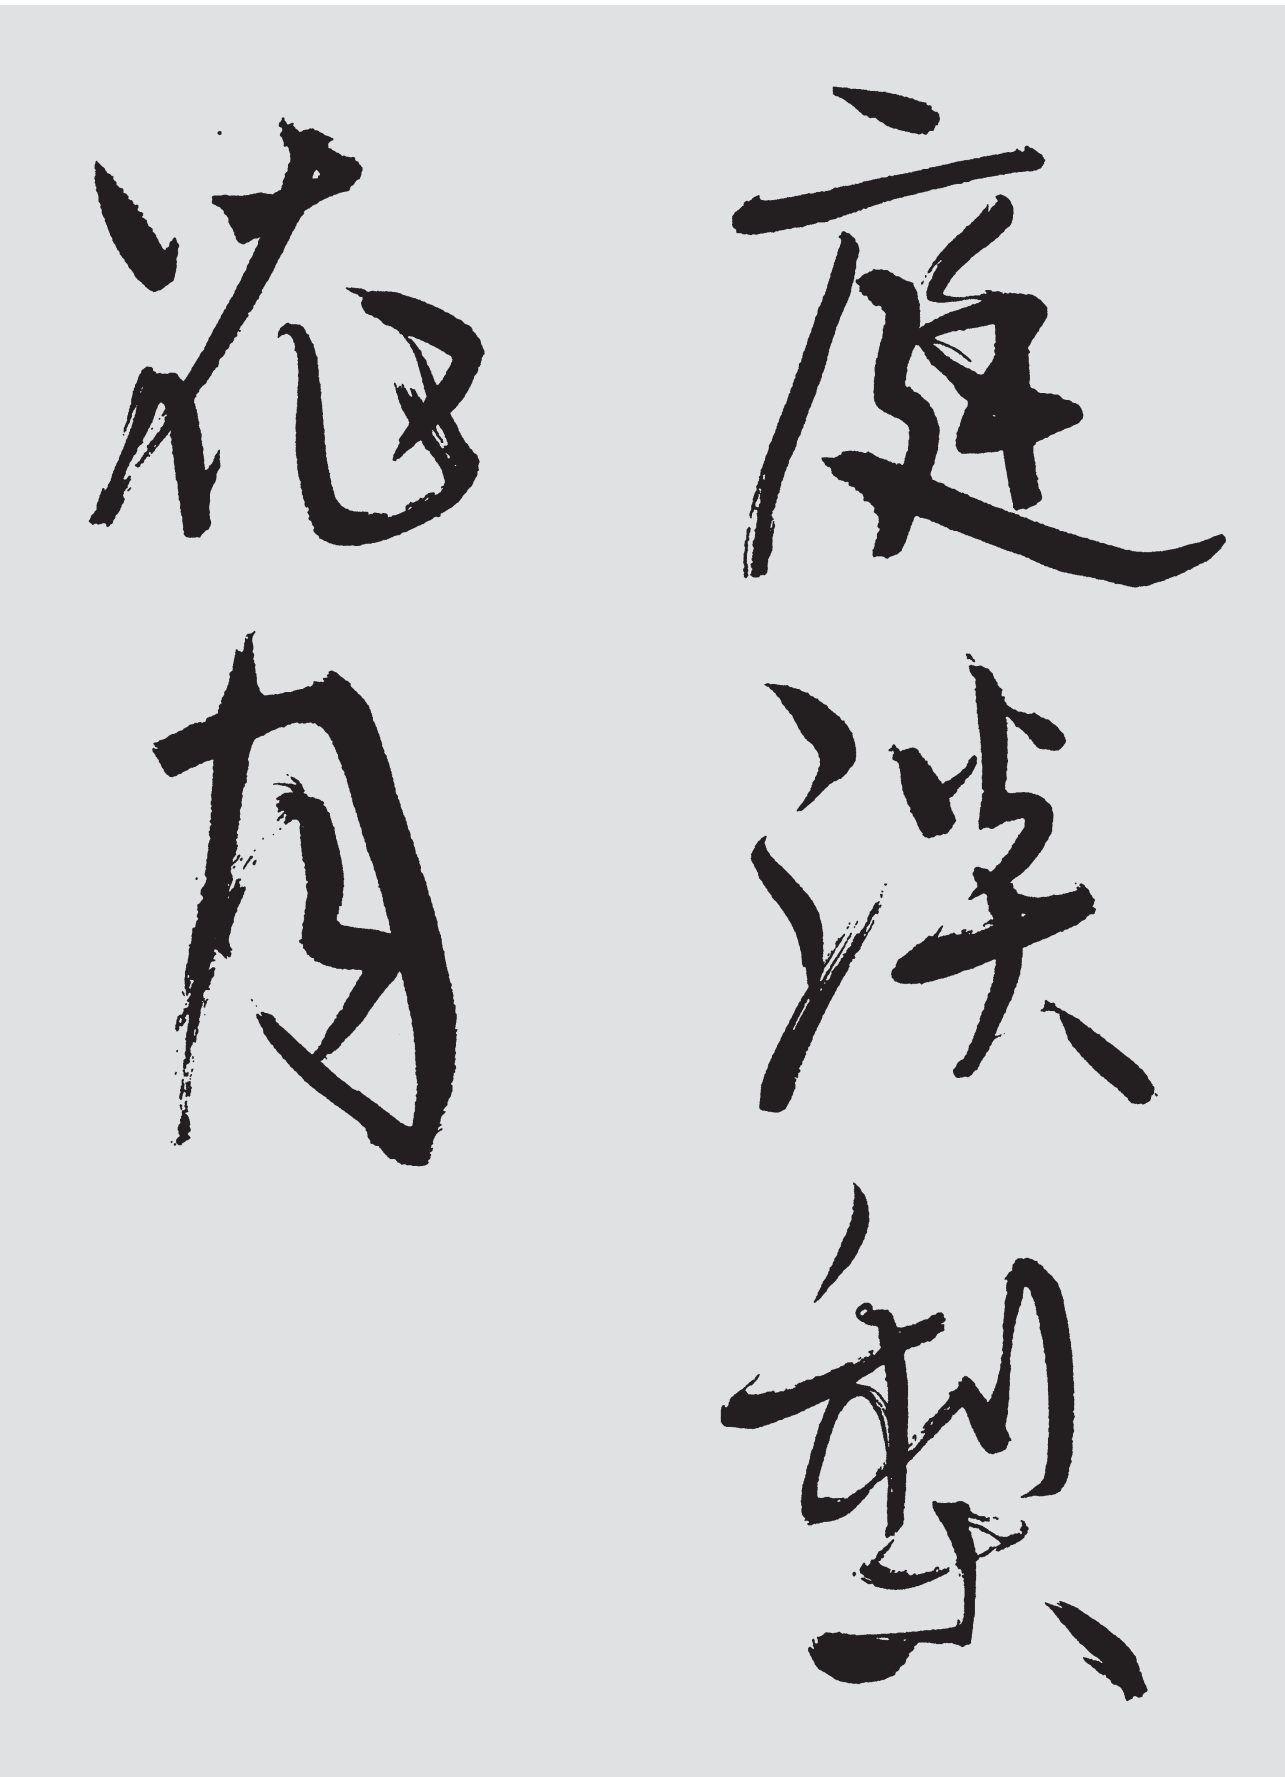 庭淡梨
花月